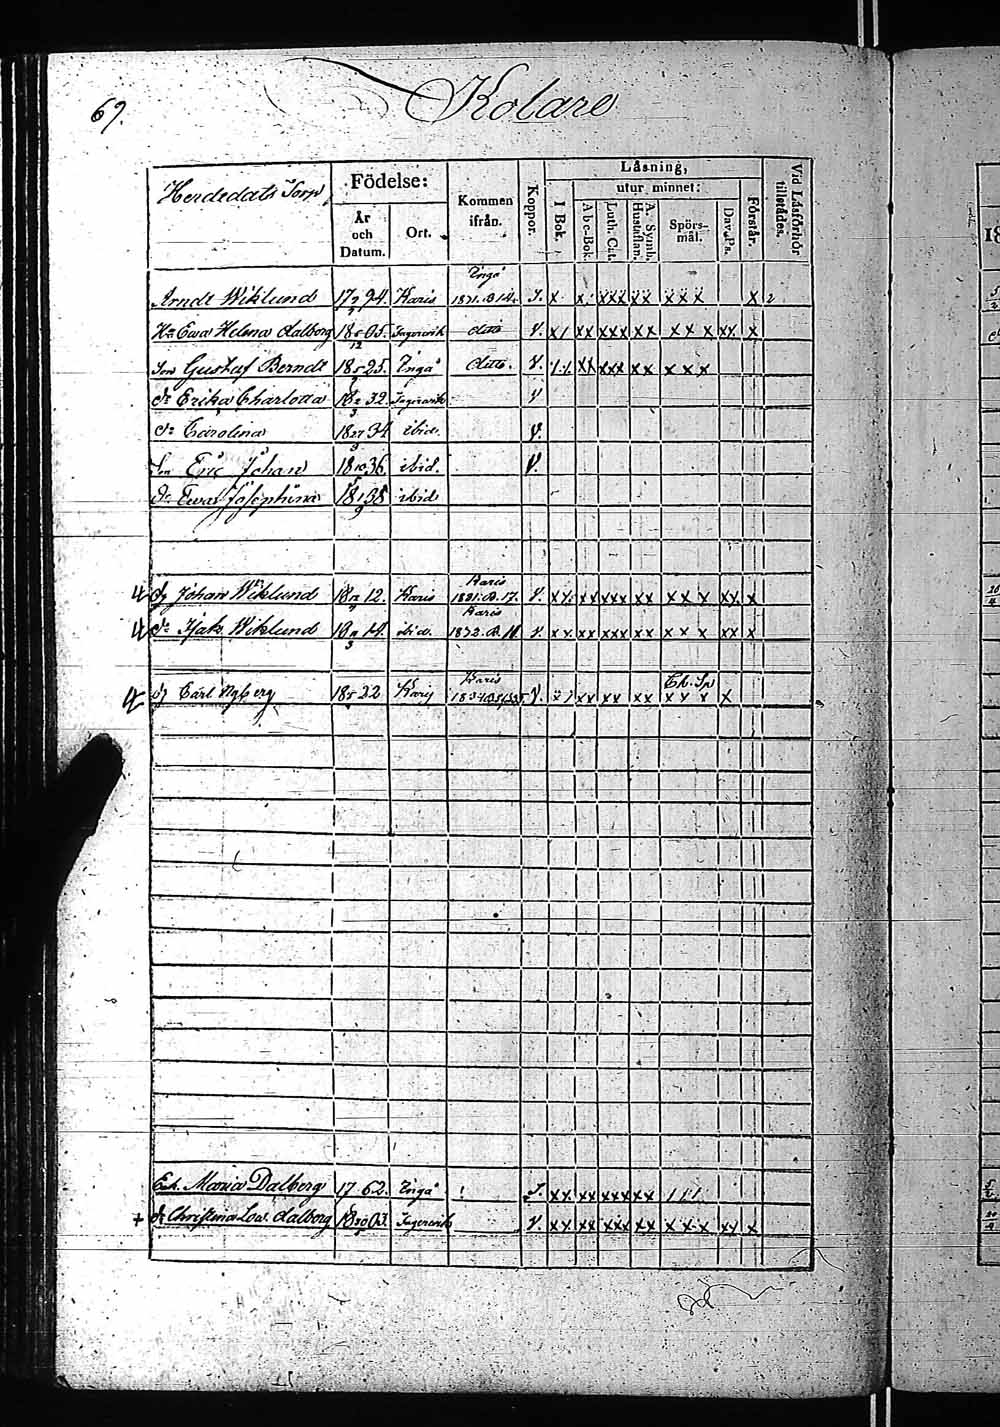 69.
Kolare
Herdedals Torp
Födelse:
År och Datum.
Ort.
Kommen ifrån.
Koppor.
Läsning,
utur minnet:
I Bok.
Abc-Bok.
Luth. Cat.
A. Symb. Hustaflan.
Spörs-mål.
Dav. Ps.
Förstår.
Vid Läsförhör tillstädes.
Ingå
Arndt Wiklund 17 94. Karis 1831. B 14. J. x x xxx xx xxx x
Hu Ewa Helena Dalberg 18 05. Fagervik ditto V. x/ xx xxx xx xxx xx x
Son Gustaf Berndt 18 25. Ingå ditto. V. xx xxx xx xxx
Dr Erika Charlotta 18 32. Fagervik V
Dr Carolina 1827 34 ibid. V.
Son Eric Johan 18 10 36. ibid. V.
Dr Ewa Josephina 18 38 ibid
Karis
Johan Wiklund 18 12. Karis 1831. B. 17. V. xx xx xxx xx xxx xx x
Karis
Wiklund 18 14. ibid. 1832. B. V. xx xx xxx xx xxx xx x
Karis
Carl Nyberg 18 22 Karis V. xx xx xx xxx x
Enk. Maria Dalberg 17 62. Ingå J. xx xx xxx xx ///
+ Dr Christina Lov. Dalberg 18 03. Fagervik V. xx xx xxx xx xxx xx x